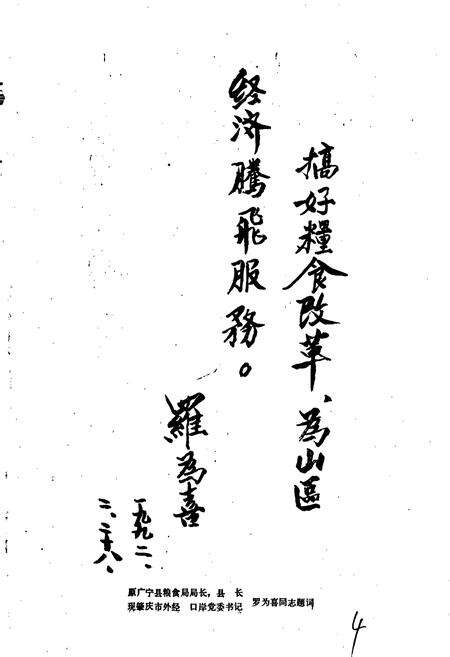 搞好糧食改革、為山區
经济騰飛服務。
羅為喜
一九九二、
二、二十八、
原广宁县粮食局局长，县　长
现肇庆市外经　口岸党委书记　罗为喜同志题词
4